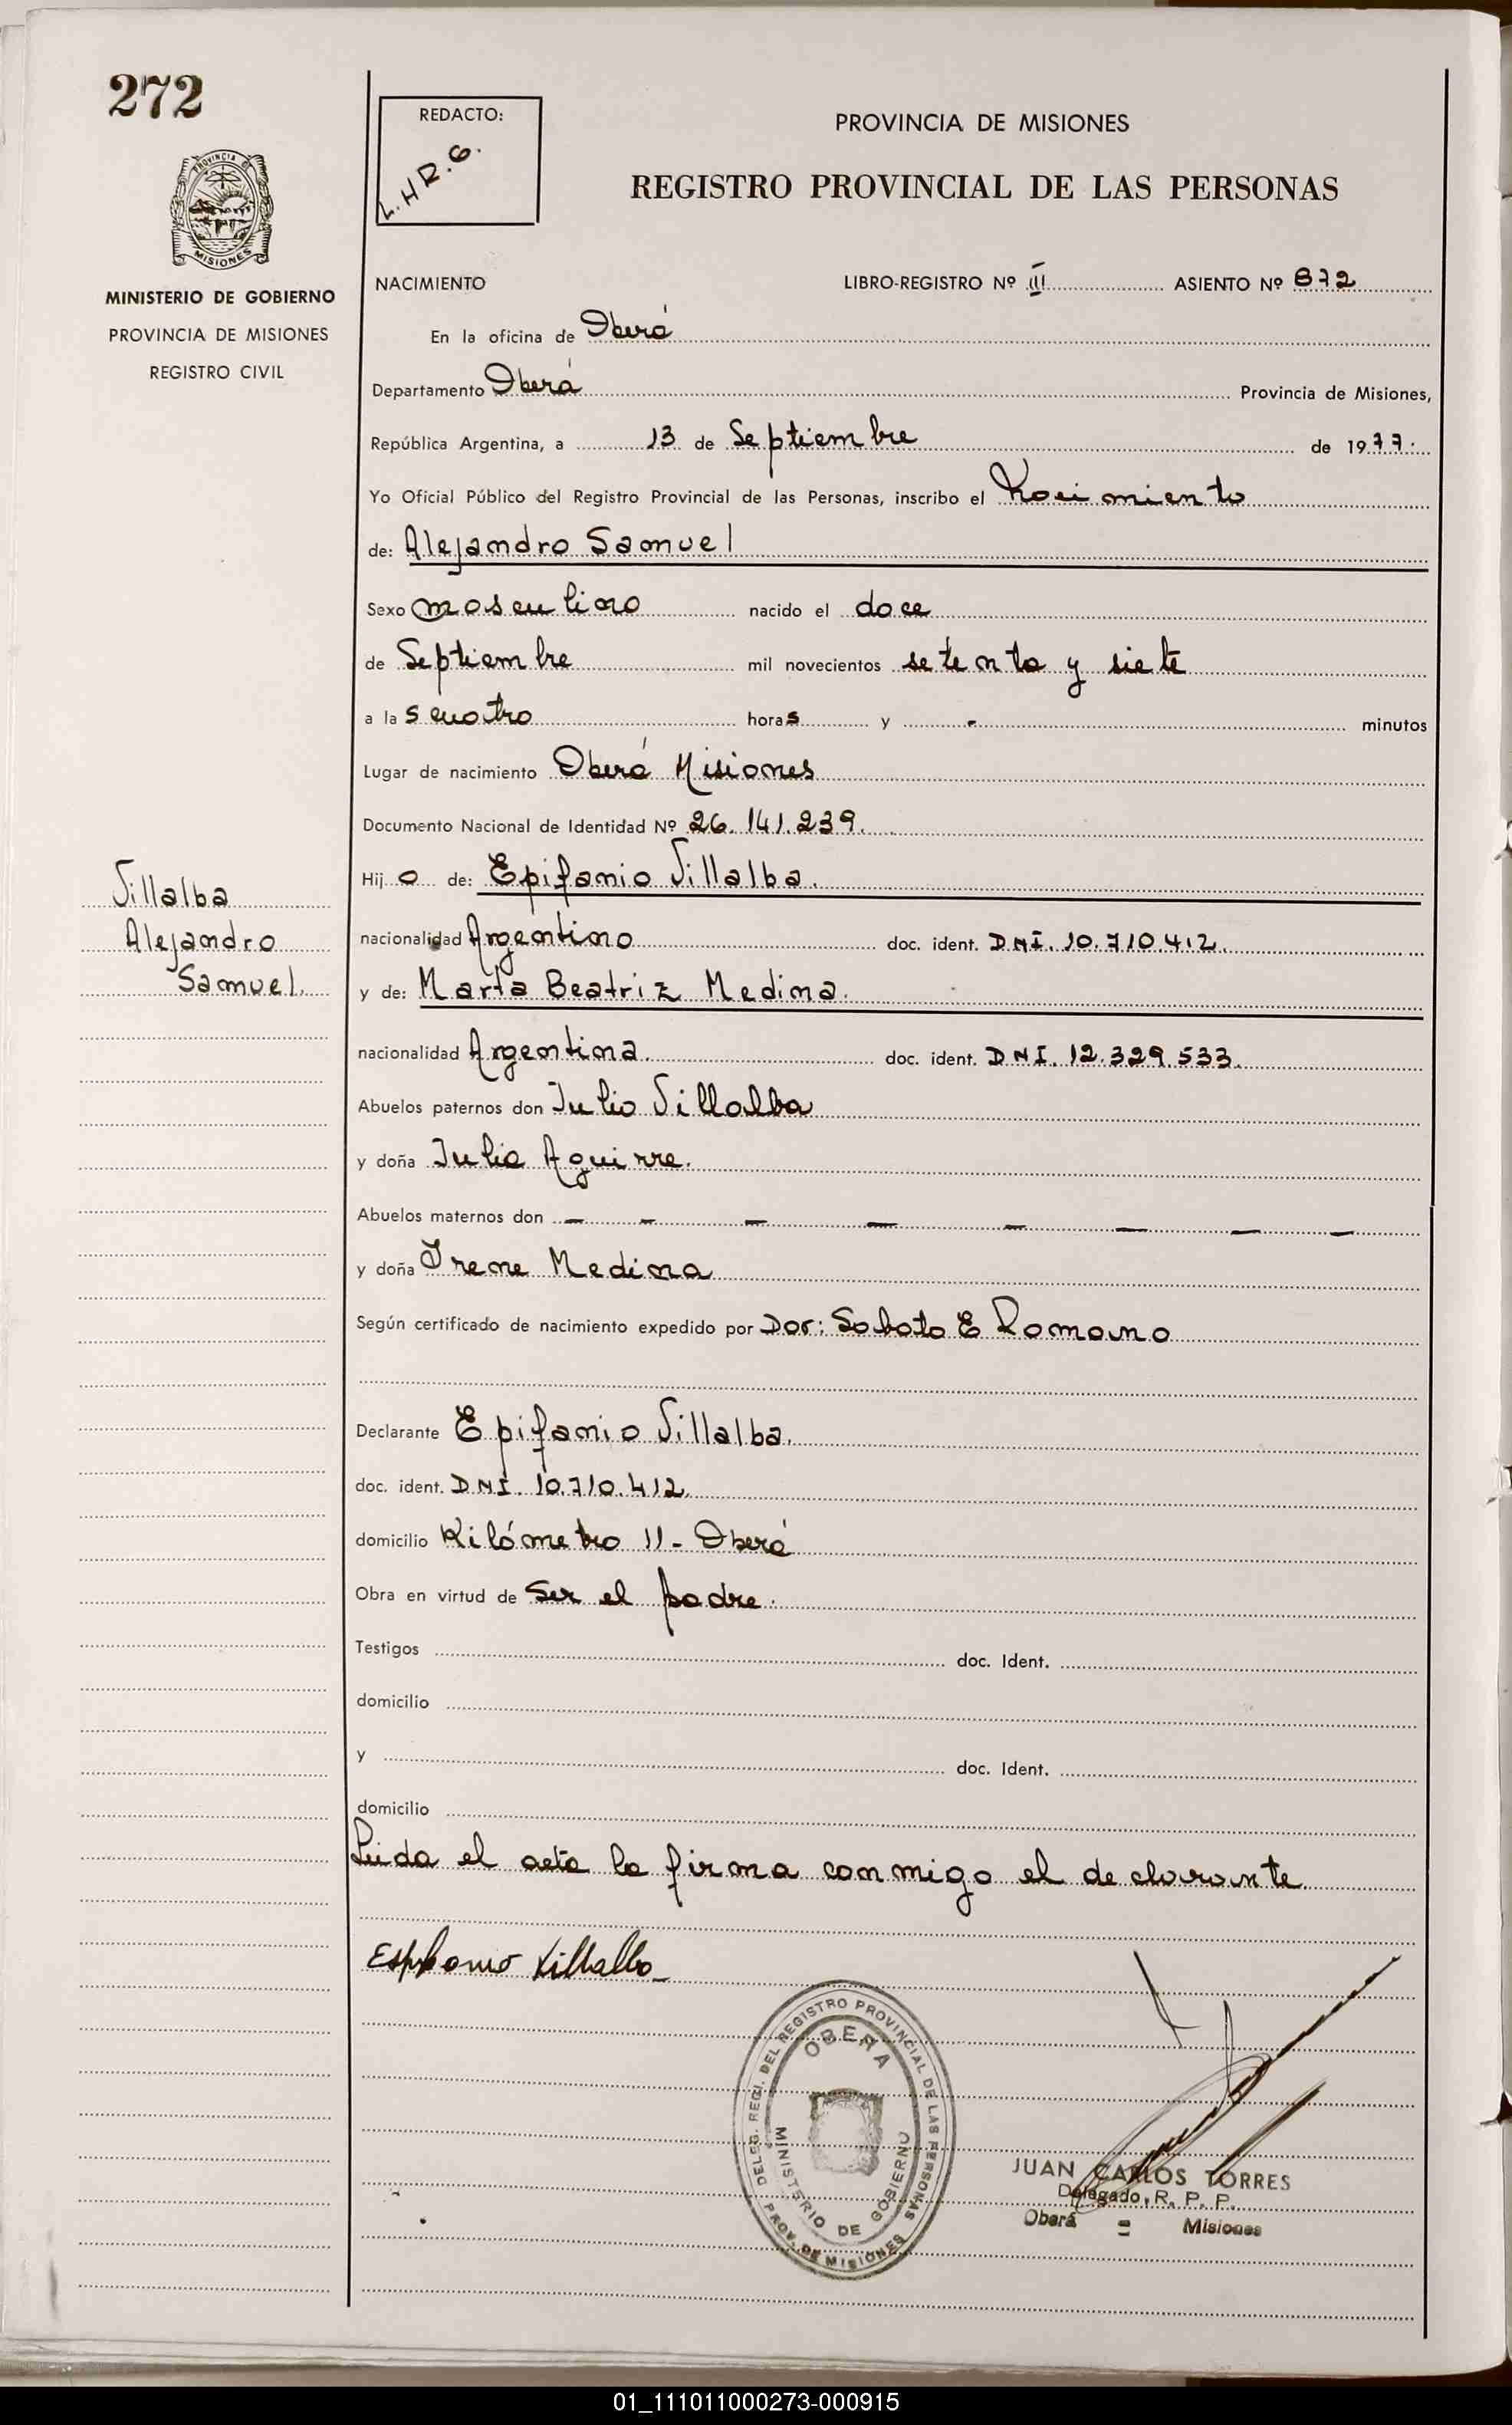 272
REDACTO:
L.H.R.G.
PROVINCIA DE MISIONES
REGISTRO PROVINCIAL DE LAS PERSONAS
PROVINCIA DE MISIONES
MINISTERIO DE GOBIERNO
PROVINCIA DE MISIONES
REGISTRO CIVIL
NACIMIENTO LIBRO-REGISTRO Nº III ASIENTO Nº 872
En la oficina de Oberá
Departamento Oberá Provincia de Misiones,
República Argentina, a 13 de Septiembre de 1977.
Yo Oficial Público del Registro Provincial de las Personas, inscribo el Nacimiento
de: Alejandro Samuel
Sexo masculino nacido el doce
de Septiembre mil novecientos setenta y siete
a las cuatro horas y - minutos
Lugar de nacimiento Oberá Misiones
Documento Nacional de Identidad Nº 26.141.239.
Hijo de: Epifanio Villalba.
Villalba
Alejandro
Samuel.
nacionalidad Argentino doc. ident. DNI. 10.710.412.
y de: Marta Beatriz Medina.
nacionalidad Argentina. doc. ident. DNI. 12.329.533.
Abuelos paternos don Julio Villalba
y doña Julia Aguirre.
Abuelos maternos don — — — — — — — —
y doña Irene Medina
Según certificado de nacimiento expedido por Dor: Sabato E Romano
Declarante Epifanio Villalba.
doc. ident. DNI. 10.710.412.
domicilio Kilómetro 11- Oberá
Obra en virtud de Ser el padre.
Testigos doc. Ident.
domicilio
y doc. Ident.
domicilio
Leida el acta la firma conmigo el declarante
Villalba
DELEG. REGI. DEL REGISTRO PROVINCIAL DE LAS PERSONAS
OBERA
MINISTERIO DE GOBIERNO
PROV. DE MISIONES
JUAN CARLOS TORRES
Delegado, R. P. P.
Oberá = Misiones
01_111011000273-000915